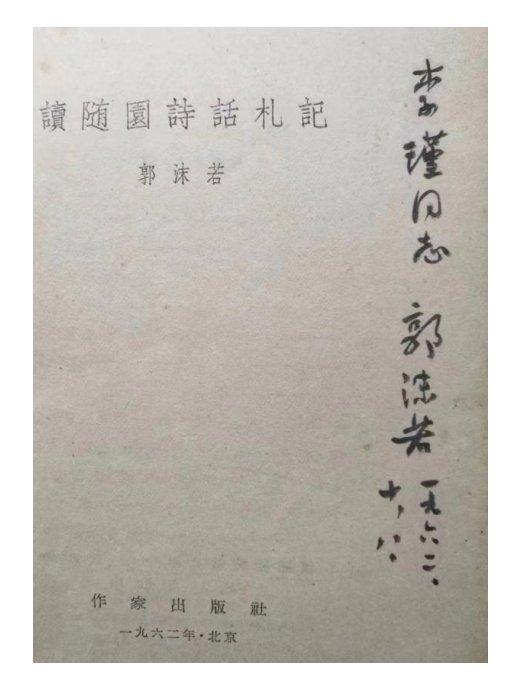 讀随園詩話札記
郭沫若
李瑾同志 郭沫若 一九六二、
十、八、
作家出版社
一九六二年·北京